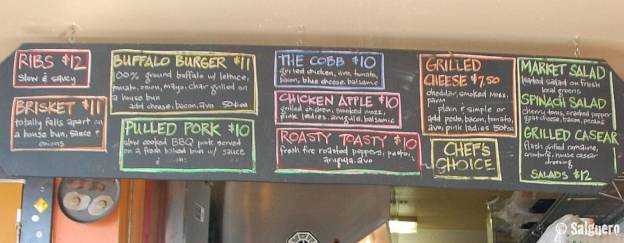 RIBS $12
Slow & saucy
BRISKET $11
totally falls apart on
a house bun, sauce +
onions
BUFFALO BURGER $11
100% ground buffalo w/ lettuce,
tomato, onion, mayo, char grilled on
a house bun
add cheese, bacon, avo 50¢ea
PULLED PORK $10
slow cooked BBQ pork served
on a fresh baked bun w/ sauce
THE COBB $10
grilled chicken, avo, tomato,
bacon, blue cheese, balsamic
CHICKEN APPLE $10
grilled chicken, smoked mozz,
pink ladies, arugula, balsamic
ROASTY TOASTY $10
fresh fire roasted peppers, pesto,
arugula, avo
GRILLED
CHEESE $7.50
cheddar, smoked mozz,
parm
plain & simple or
add pesto, bacon, tomato,
avo, pink ladies 50¢ea
CHEF'S
CHOICE
MARKET SALAD
salad on fresh
local greens
SPINACH SALAD
cherry toms, cracked pepper
goat cheese, bacon, pecans
GRILLED CAESAR
flash grilled romaine,
croutons, house caesar
dressing
SALADS $12
© Salguero